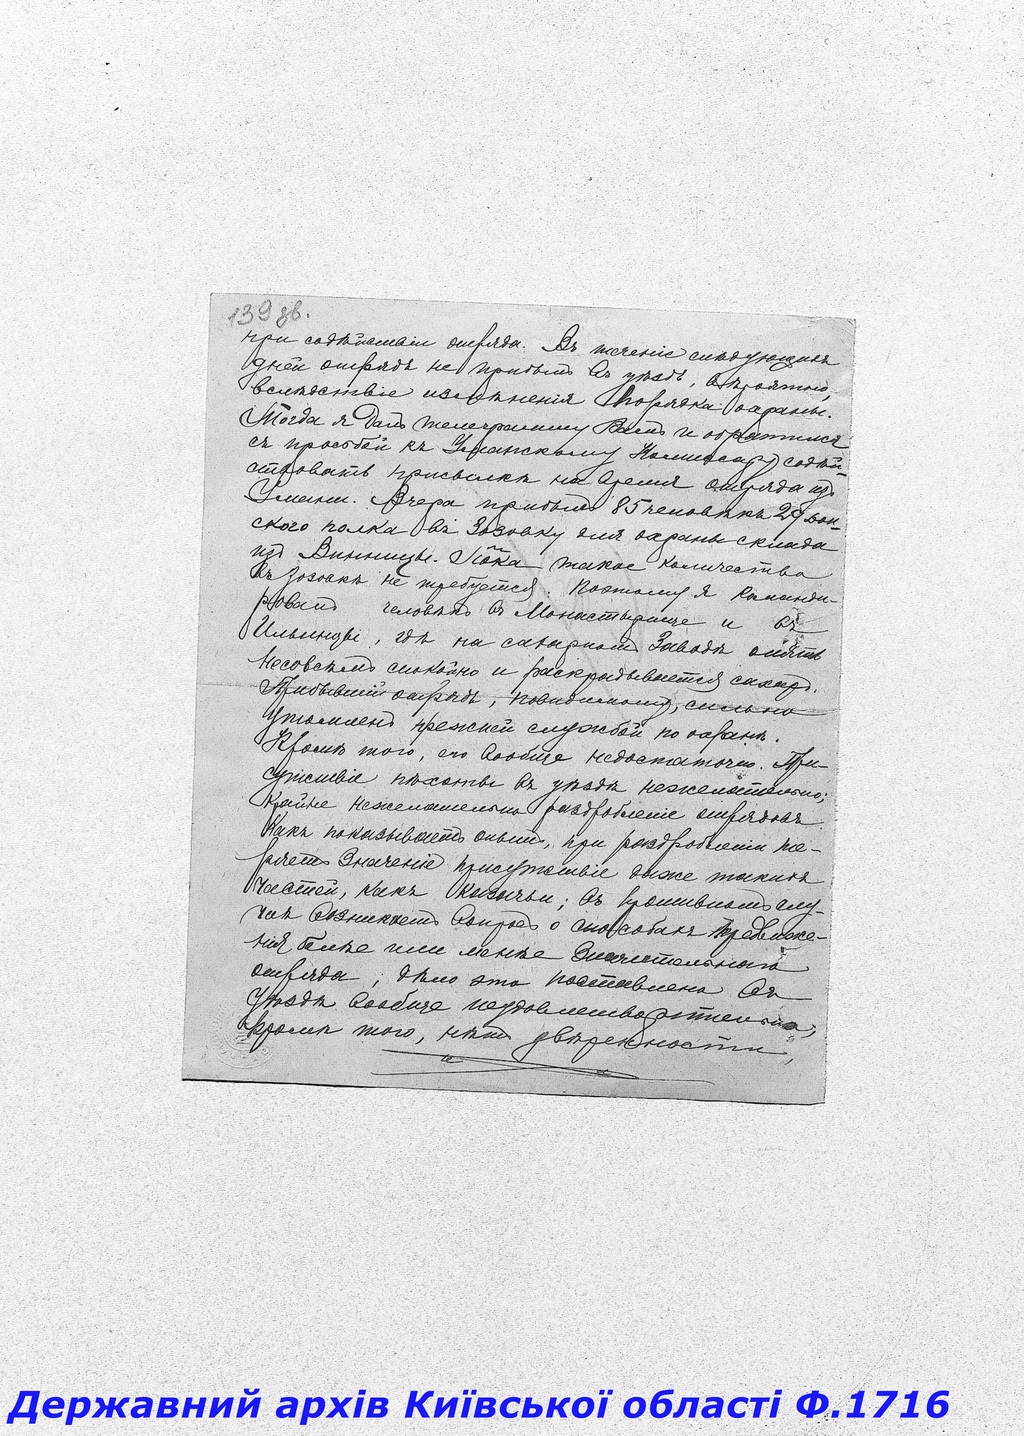 139 зв.
при содѣйствіи отряда. Въ теченіе слѣдующихъ
дней отрядъ не прибылъ въ уѣздъ, вѣроятно,
вслѣдствіе измѣненія порядка охраны.
Тогда я далъ телеграмму Вамъ и обратился
съ просьбой къ Уманскому Комиссару содѣй-
ствовать присылкѣ на время отряда изъ
Умани. Вчера прибыло 85 человѣкъ 29
ского полка въ Зозовку для охраны склада
изъ Винницы. Пока такое количество
въ Зозовкѣ не требуется. Поэтому я команди-
ровалъ человѣкъ въ Монастырище и въ
Ильинцы, гдѣ на сахарномъ заводѣ опять
несовсѣмъ спокойно и раскрадывается сахаръ.
Прибывшій отрядъ, повидимому, сильно
утомленъ прежней службой по охранѣ.
Кромѣ того, его вообще недостаточно. При-
сутствіе пѣхоты въ уѣздѣ нежелательно;
крайне нежелательно раздробленіе отрядовъ.
Какъ показываетъ опытъ, при раздробленіи те-
ряетъ значеніе присутствіе даже такихъ
частей, какъ казачьи; въ противномъ слу-
чаѣ возникаетъ вопросъ о способахъ передвиже-
нія болѣе или менѣе значительнаго
отряда; дѣло это поставлено въ
уѣздѣ вообще неудовлетворительно;
кромѣ того, нѣтъ увѣренности,
Державний архів Київської області Ф.1716